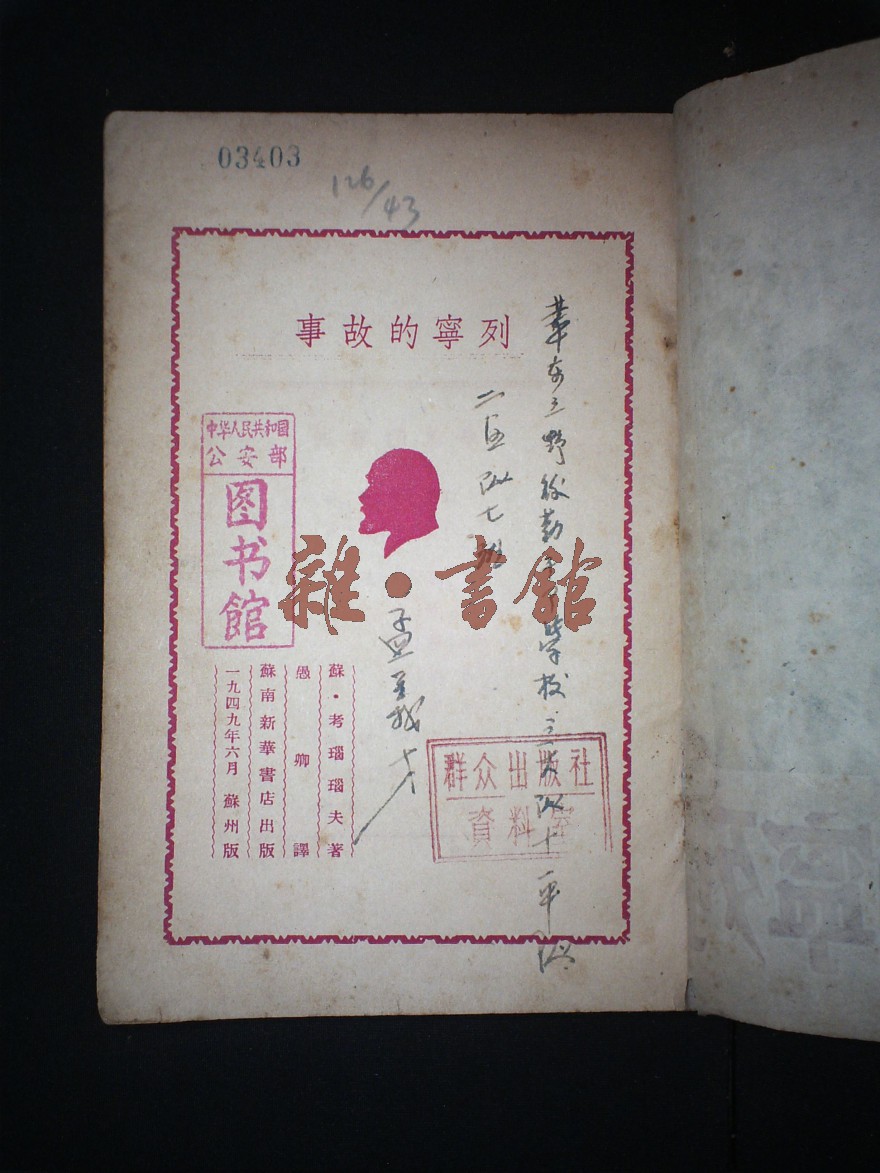 03403
126/43
列寧的故事
華东三野後勤
學校三大队十一中队
二区队七班
孟
中华人民共和國
公安部
图书馆
雜·書館
蘇·考瑙瑙夫著
愚卿譯
蘇南新華書店出版
一九四九年六月 蘇州版
群众出版社
資料室